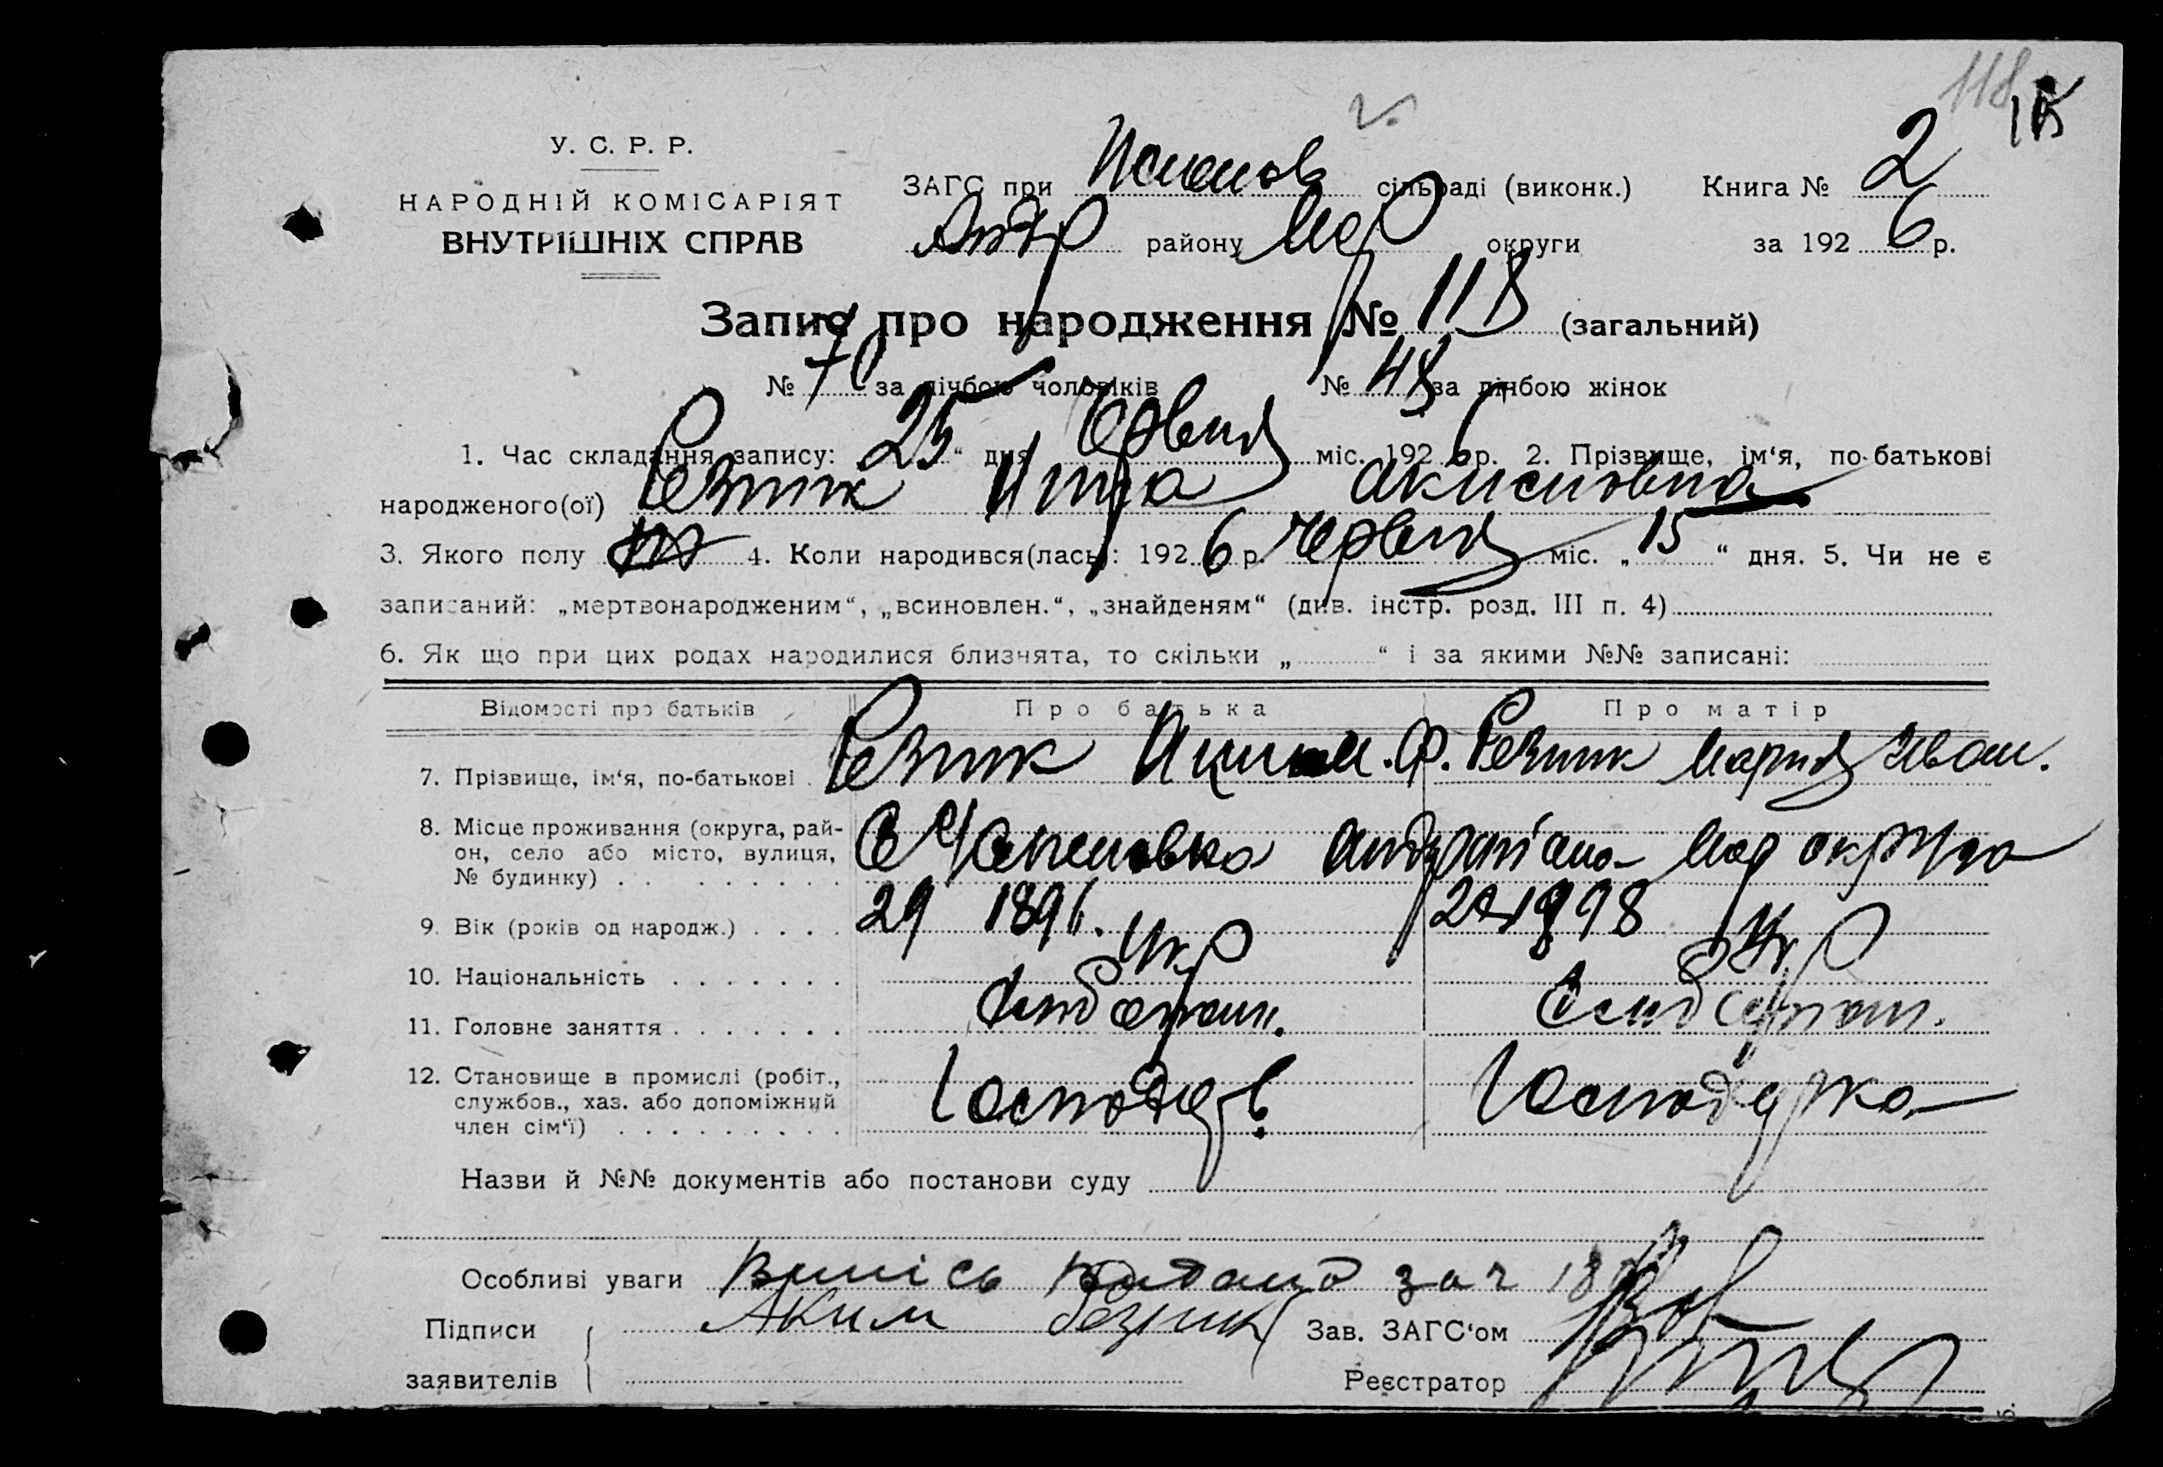 118
У. С. Р. Р.
НАРОДНІЙ КОМІСАРІЯТ
ВНУТРІШНІХ СПРАВ
ЗАГС при сільраді (виконк.) Книга № 2
Андр району Мар округи за 192 6 р.
Запис про народження № 118 (загальний)
№ 70 за лічбою чоловіків № 48 за лічбою жінок
1. Час складання запису: 25 “ дня Червня міс. 192 6 р. 2. Прізвище, ім‘я, по-батькові
народженого(ої) Резник Акимовна
3. Якого полу 4. Коли народився(лась): 192 6 р. Червня міс. „ 15 “ дня. 5. Чи не є
записаний: „мертвонародженим“, „всиновлен.“, „знайденям“ (див. інстр. розд. III п. 4)
6. Як що при цих родах народилися близнята, то скільки „ “ і за якими №№ записані:
Відомості про батьків Про батька Про матір
7. Прізвище, ім‘я, по-батькові Резник Аким. Ф. Резник Мария Иван.
8. Місце проживання (округа, рай-
он, село або місто, вулиця,
№ будинку) Мар округа
9. Вік (років од народж.) 29 1896. 1898
10. Національність Укр Укр
11. Головне заняття
12. Становище в промислі (робіт.,
службов., хаз. або допоміжний
член сім‘ї) Господар. Господарка
Назви й №№ документів або постанови суду
Особливі уваги Випісь видано за ч
Підписи Аким Резник Зав. ЗАГС‘ом
заявителів Реєстратор